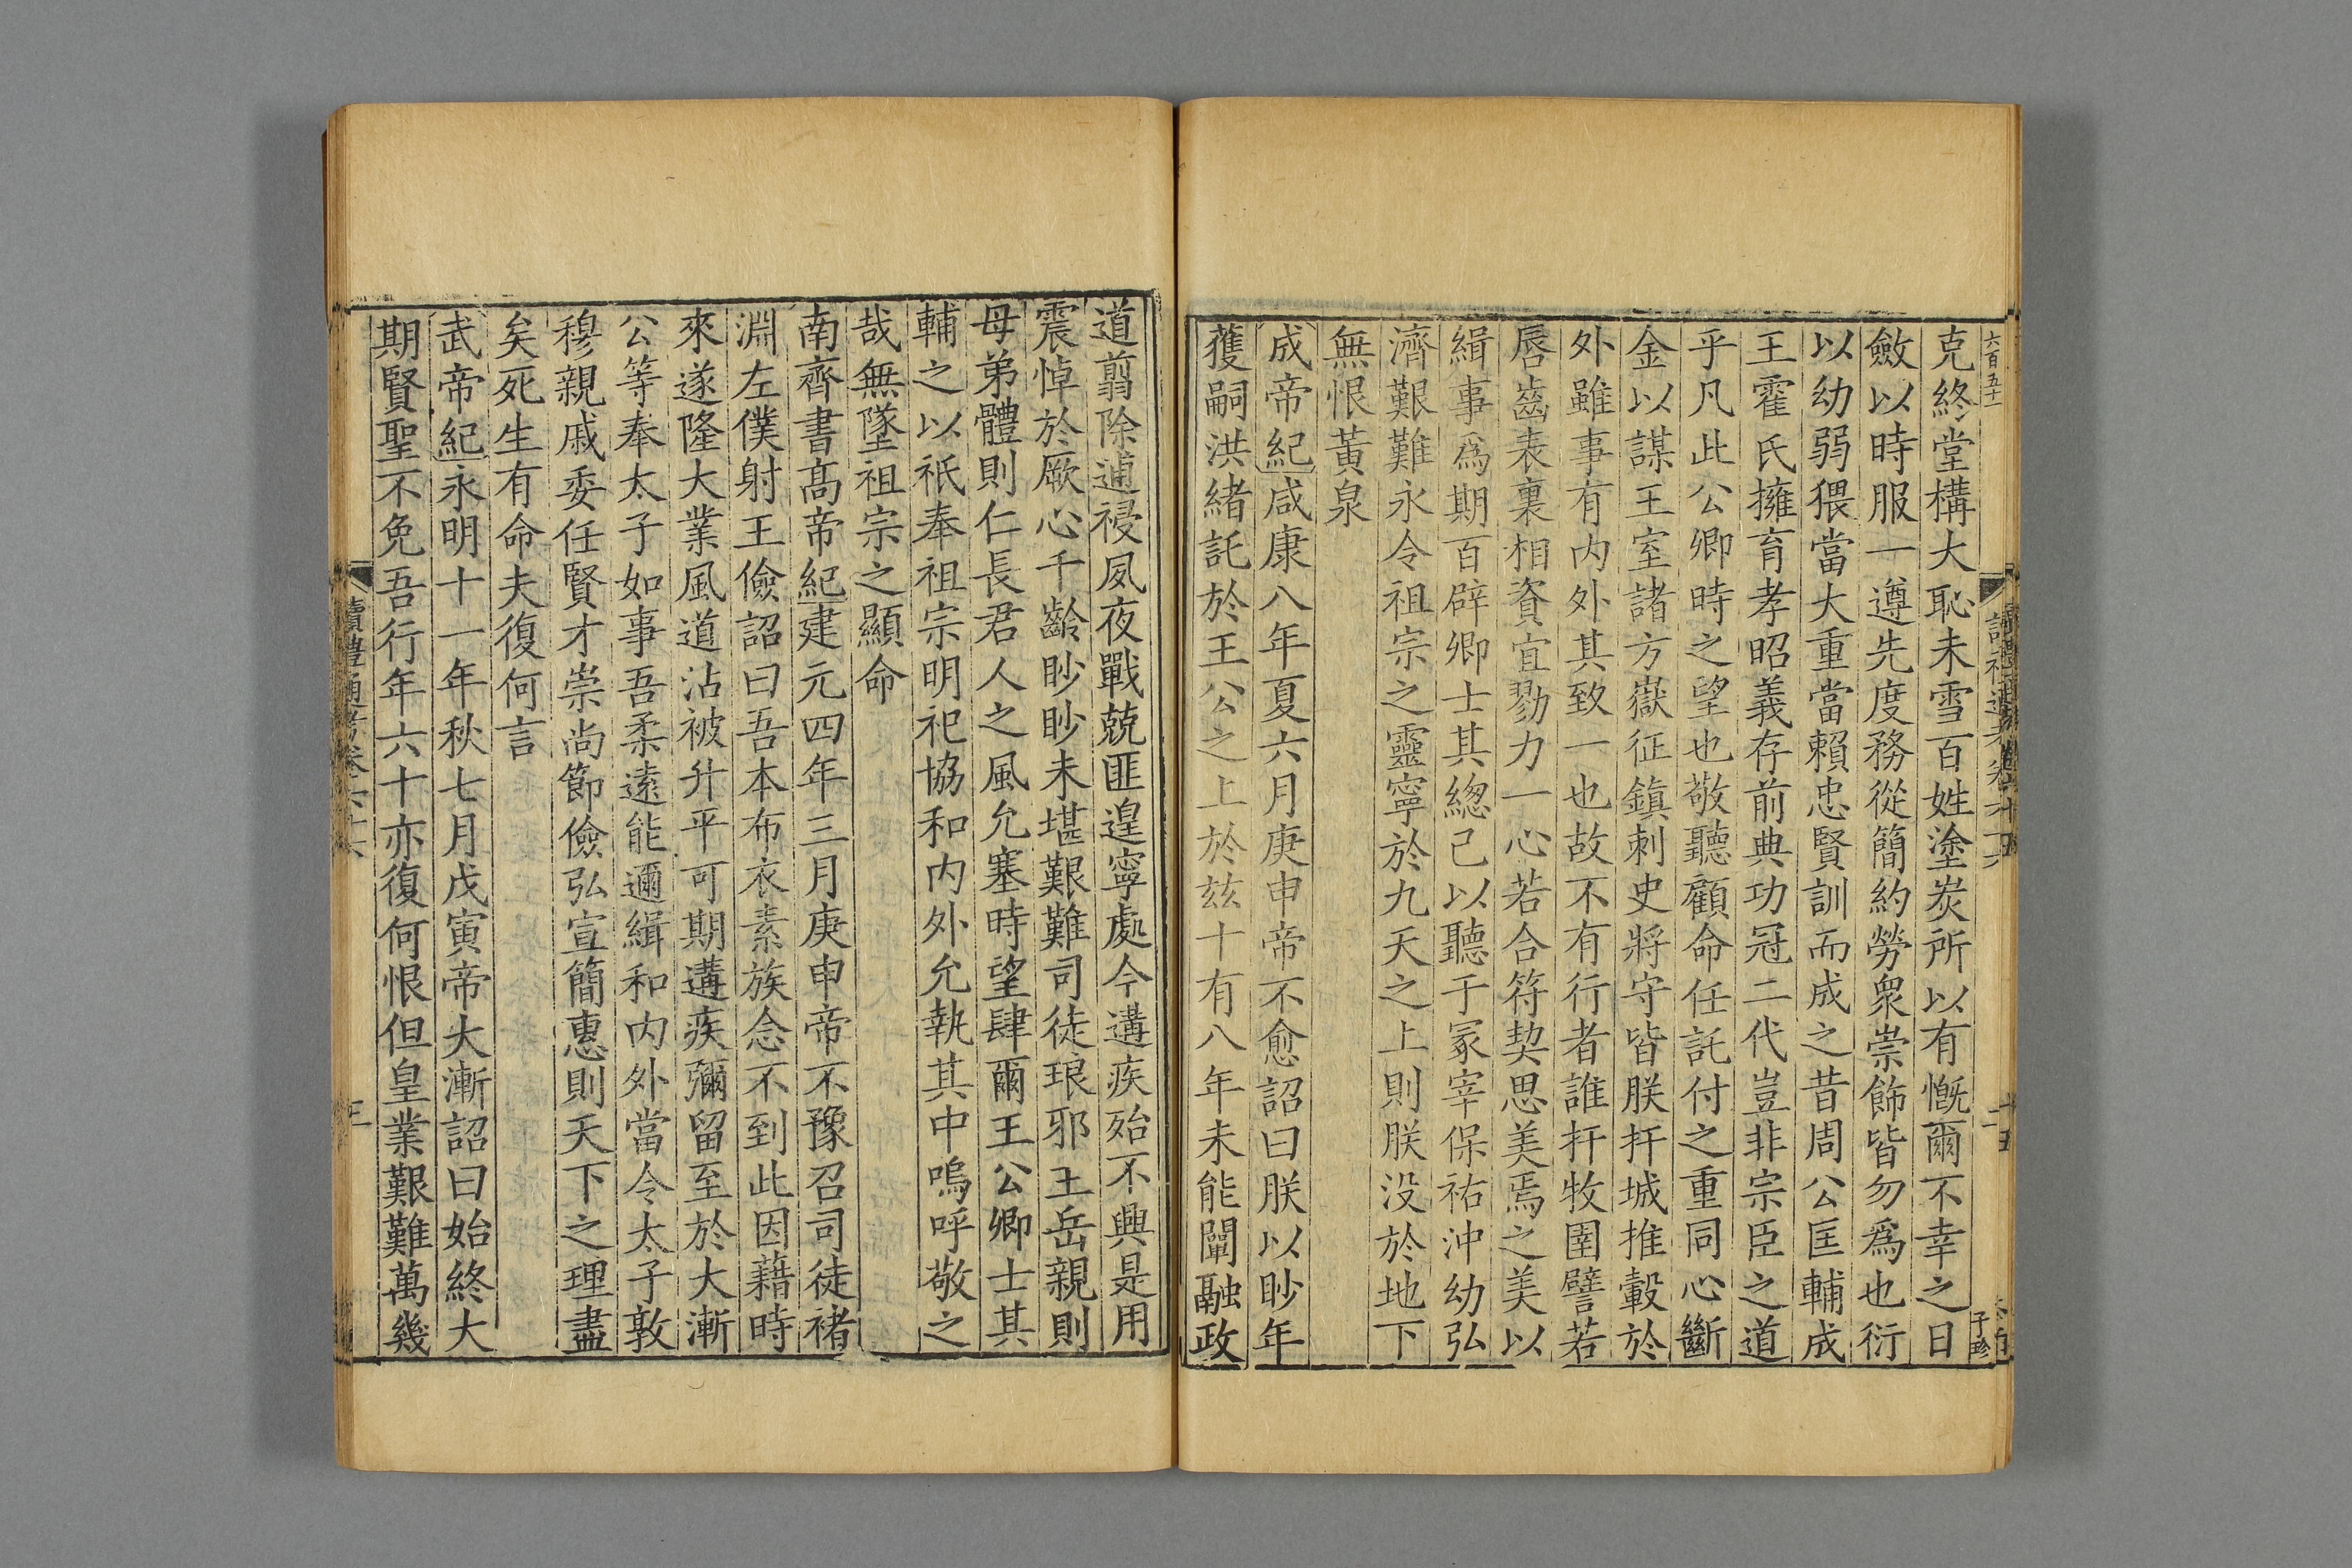 六百五十一
克終堂構大恥未雪百姓塗炭所以有慨爾不幸之日
斂以時服一遵先度務從簡約勞衆崇飾皆勿爲也衍
以幼弱猥當大重當賴忠賢訓而成之昔周公匡輔成
王霍氏擁育孝昭義存前典功冠二代豈非宗臣之道
乎凡此公卿時之望也敬聽顧命任託付之重同心斷
金以謀王室諸方嶽征鎮刺史將守皆朕扞城推轂於
外雖事有内外其致一也故不有行者誰扞牧圉譬若
唇齒表裏相資宜勠力一心若合符契思美焉之美以
緝事爲期百辟卿士其緫己以聽于冢宰保祐沖幼弘
濟艱難永令祖宗之靈寧於九天之上則朕没於地下
無恨黃泉
成帝紀咸康八年夏六月庚申帝不愈詔曰朕以眇年
獲嗣洪緒託於王公之上於兹十有八年未能闡融政
道翦除逋祲夙夜戰兢匪遑寧處今遘疾殆不興是用
震悼於厥心千齡眇眇未堪艱難司徒琅邪王岳親則
母弟體則仁長君人之風允塞時望肆爾王公卿士其
輔之以祇奉祖宗明祀協和内外允執其中嗚呼敬之
哉無墜祖宗之顯命
南齊書高帝紀建元四年三月庚申帝不豫召司徒褚
淵左僕射王儉詔曰吾本布衣素族念不到此因藉時
來遂隆大業風道沾被升平可期遘疾彌留至於大漸
公等奉太子如事吾柔遠能邇緝和内外當令太子敦
穆親戚委任賢才崇尚節儉弘宣簡惠則天下之理盡
矣死生有命夫復何言
武帝紀永明十一年秋七月戊寅帝大漸詔曰始終大
期賢聖不免吾行年六十亦復何恨但皇業艱難萬幾
讀禮通考卷六十六
三